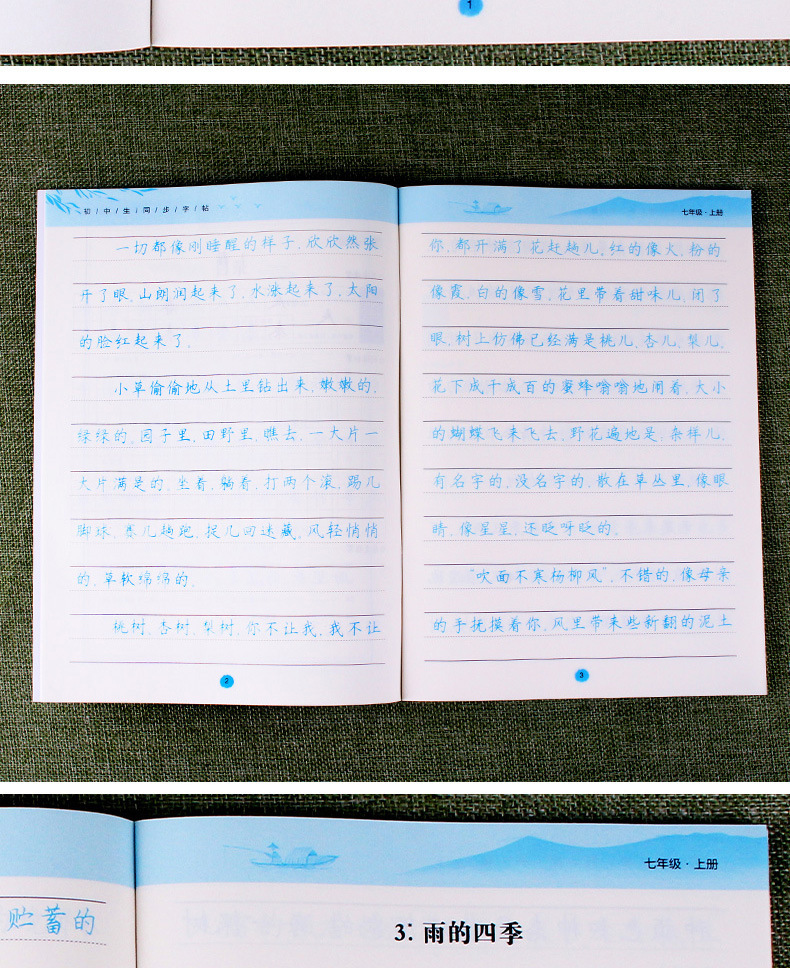 1
初/中/生/同/步/字/帖
一切都像刚睡醒的样子,欣欣然张
开了眼,山朗润起来了,水涨起来了,太阳
的脸红起来了.
小草偷偷地从土里钻出来,嫩嫩的,
绿绿的,园子里,田野里,瞧去,一大片一
大片满是的,坐着,躺着,打两个滚,踢几
脚球,赛几趟跑,捉几回迷藏,风轻悄悄
的,草软绵绵的.
桃树,杏树,梨树,你不让我,我不让
2
七年级·上册
你,都开满了花赶趟儿,红的像火,粉的
像霞,白的像雪,花里带着甜味儿,闭了
眼,树上仿佛已经满是桃儿,杏儿,梨儿,
花下成千成百的蜜蜂嗡嗡地闹着,大小
的蝴蝶飞来飞去,野花遍地是,杂样儿,
有名字的,没名字的,散在草丛里,像眼
睛,像星星,还眨呀眨的.
“吹面不寒杨柳风”,不错的,像母亲
的手抚摸着你,风里带来些新翻的泥土
3
七年级·上册
贮蓄的
3: 雨的四季